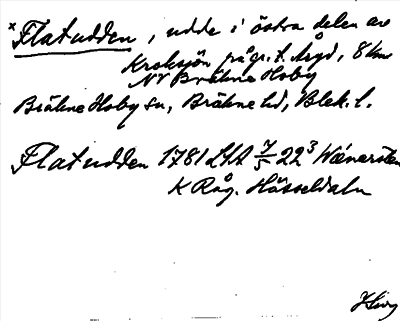 × Flatudden, udde i östra delen av
Kroksjön på gr. t. Åryd, 8 km
NV Bräkne Hoby
Bräkne Hoby sn, Bräkne hd, Blek. l.
Flatudden 1781 LSA 7/5 22³
K Råg. Hässeldala